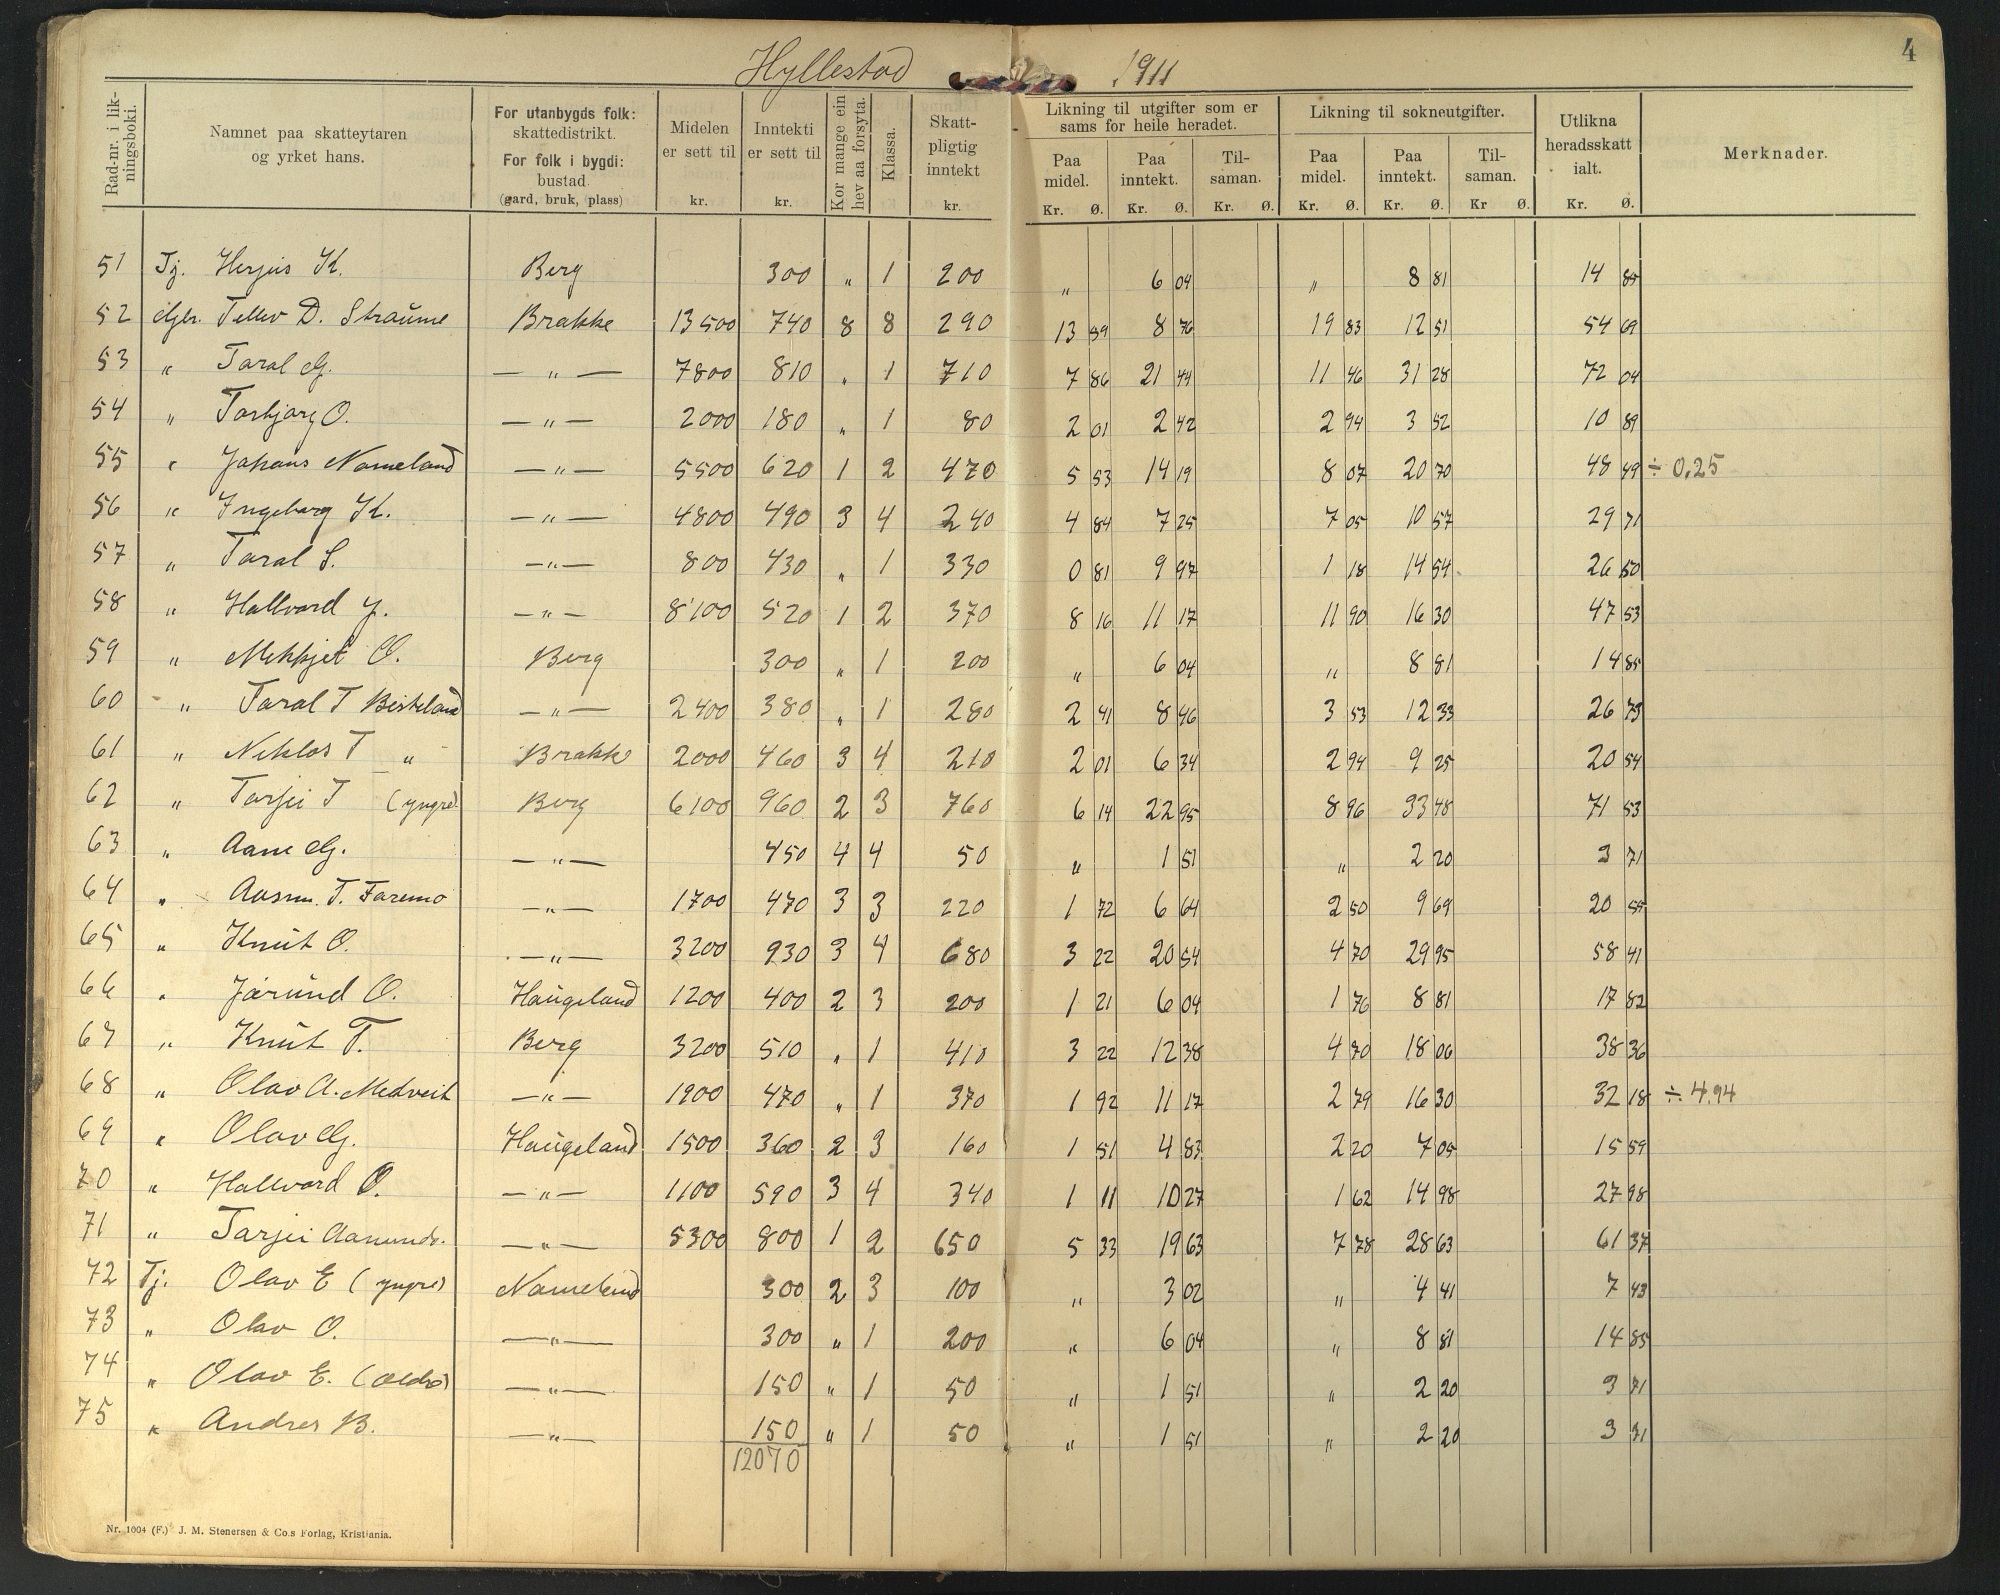 Hyllestad 1911
4
Rad-nr. i likningsboki.
Namnet paa skatteytaren og yrket hans.
For utanbygds folk: skattedistrikt. For folk i bygdi: bustad (gard, bruk, plass)
Midelen er sett til kr.
Inntekti er sett til kr.
Kor mange ein hev aa forsyta.
Klassa.
Skattpligtig inntekt kr.
Likning til utgifter som er sams for heile heradet.
Paa midel. Kr. Ø.
Paa inntekt. Kr. Ø.
Tilsaman. Kr. Ø.
Likning til sokneutgifter.
Paa midel. Kr. Ø.
Paa inntekt. Kr. Ø.
Tilsaman. Kr Ø.
Utlikna heradsskatt ialt. Kr. Ø.
Merknader.
51 Tj. Herjus K. Berg 300 „ 1 200 „ 6 04 „ 8 81 14 85
52 Gbr. Tellev D. Straume Brokke 13500 740 8 8 290 13 59 8 76 19 83 12 51 54 69
53 „ Taral G. — „ — 7800 810 „ 1 710 7 86 21 44 11 46 31 28 72 04
54 „ Torbjørg O. — „ — 2000 180 „ 1 80 2 01 2 42 2 94 3 52 10 89
55 „ Johans Nomeland — „ — 5500 620 1 2 470 5 53 14 19 8 07 20 70 48 49 ÷ 0.25
56 „ Ingeborg K. — „ — 4800 490 3 4 240 4 84 7 25 7 05 10 57 29 71
57 „ Taral S. — „ — 800 430 „ 1 330 0 81 9 97 1 18 14 54 26 50
58 „ Hallvard J. — „ — 8100 520 1 2 370 8 16 11 17 11 90 16 30 47 53
59 „ Mikkjel O. Berg 300 „ 1 200 „ 6 04 „ 8 81 14 85
60 „ Taral T Besteland — „ — 2400 380 „ 1 280 2 41 8 46 3 53 12 33 26 73
61 „ Niklos T „ Brokke 2000 460 3 4 210 2 01 6 34 2 94 9 25 20 54
62 „ Tarjei T (yngre) Berg 6100 960 2 3 760 6 14 22 95 8 96 33 48 71 53
63 „ Aane G. — „ — 450 4 4 50 „ 1 51 „ 2 20 3 71
64 „ Aasm. T. Faremo — „ — 1700 470 3 3 220 1 72 6 64 2 50 9 69 20 55
65 „ Knut O. — „ — 3200 930 3 4 680 3 22 20 54 4 70 29 95 58 41
66 „ Jørund O. Haugeland 1200 400 2 3 200 1 21 6 04 1 76 8 81 17 82
67 „ Knut T. Berg 3200 510 „ 1 410 3 22 12 38 4 70 18 06 38 36
68 „ Olav A. Medveit — „ — 1900 470 „ 1 370 1 92 11 17 2 79 16 30 32 18 ÷ 4.94
69 „ Olav G. Haugeland 1500 360 2 3 160 1 51 4 83 2 20 7 05 15 59
70 „ Hallvard O. — „ — 1100 590 3 4 340 1 11 10 27 1 62 14 98 27 98
71 „ Tarjei Aanunds. — „ — 5300 800 1 2 650 5 33 19 63 7 78 28 63 61 37
72 Tj. Olav E (yngre) Nomeland 300 2 3 100 „ 3 02 „ 4 41 7 43
73 „ Olav O. — „ — 300 „ 1 200 „ 6 04 „ 8 81 14 85
74 „ Olav E. (Eldre) — „ — 150 „ 1 50 „ 1 51 „ 2 20 3 71
75 „ Andres B. — „ — 150 „ 1 50 „ 1 51 „ 2 20 3 71
12070
Nr. 1004 (F.) J. M. Stenersen & Co.s Forlag, Kristiania.